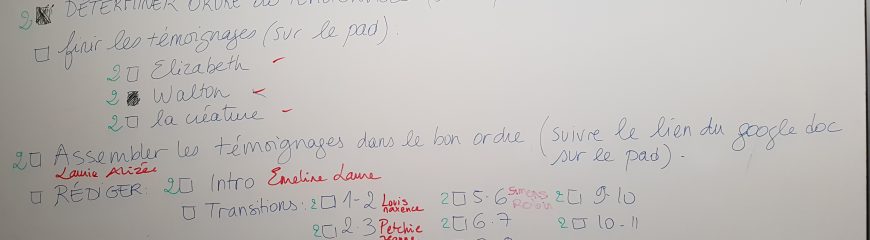 2 DÉTERMINER ORDRE
finir les témoignages (sur le pad).
2 Elizabeth
2 Walton
2 la créature
2 Assembler les témoignages dans le bon ordre (suivre le lien du google doc
sur le pad).
Laurie Alizée
RÉDIGER: 2 Intro Emeline Laure
Transitions: 2 1-2 Louis Maxence 2 5.6 2 9-10
2 2.3 2 6.7 2 10-11